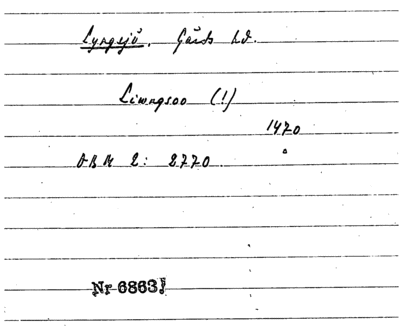 Lyngsjö. Gärds hd.
Liwngsoo (!)
1470
ÄBM 2: 2770.
Nr 6863